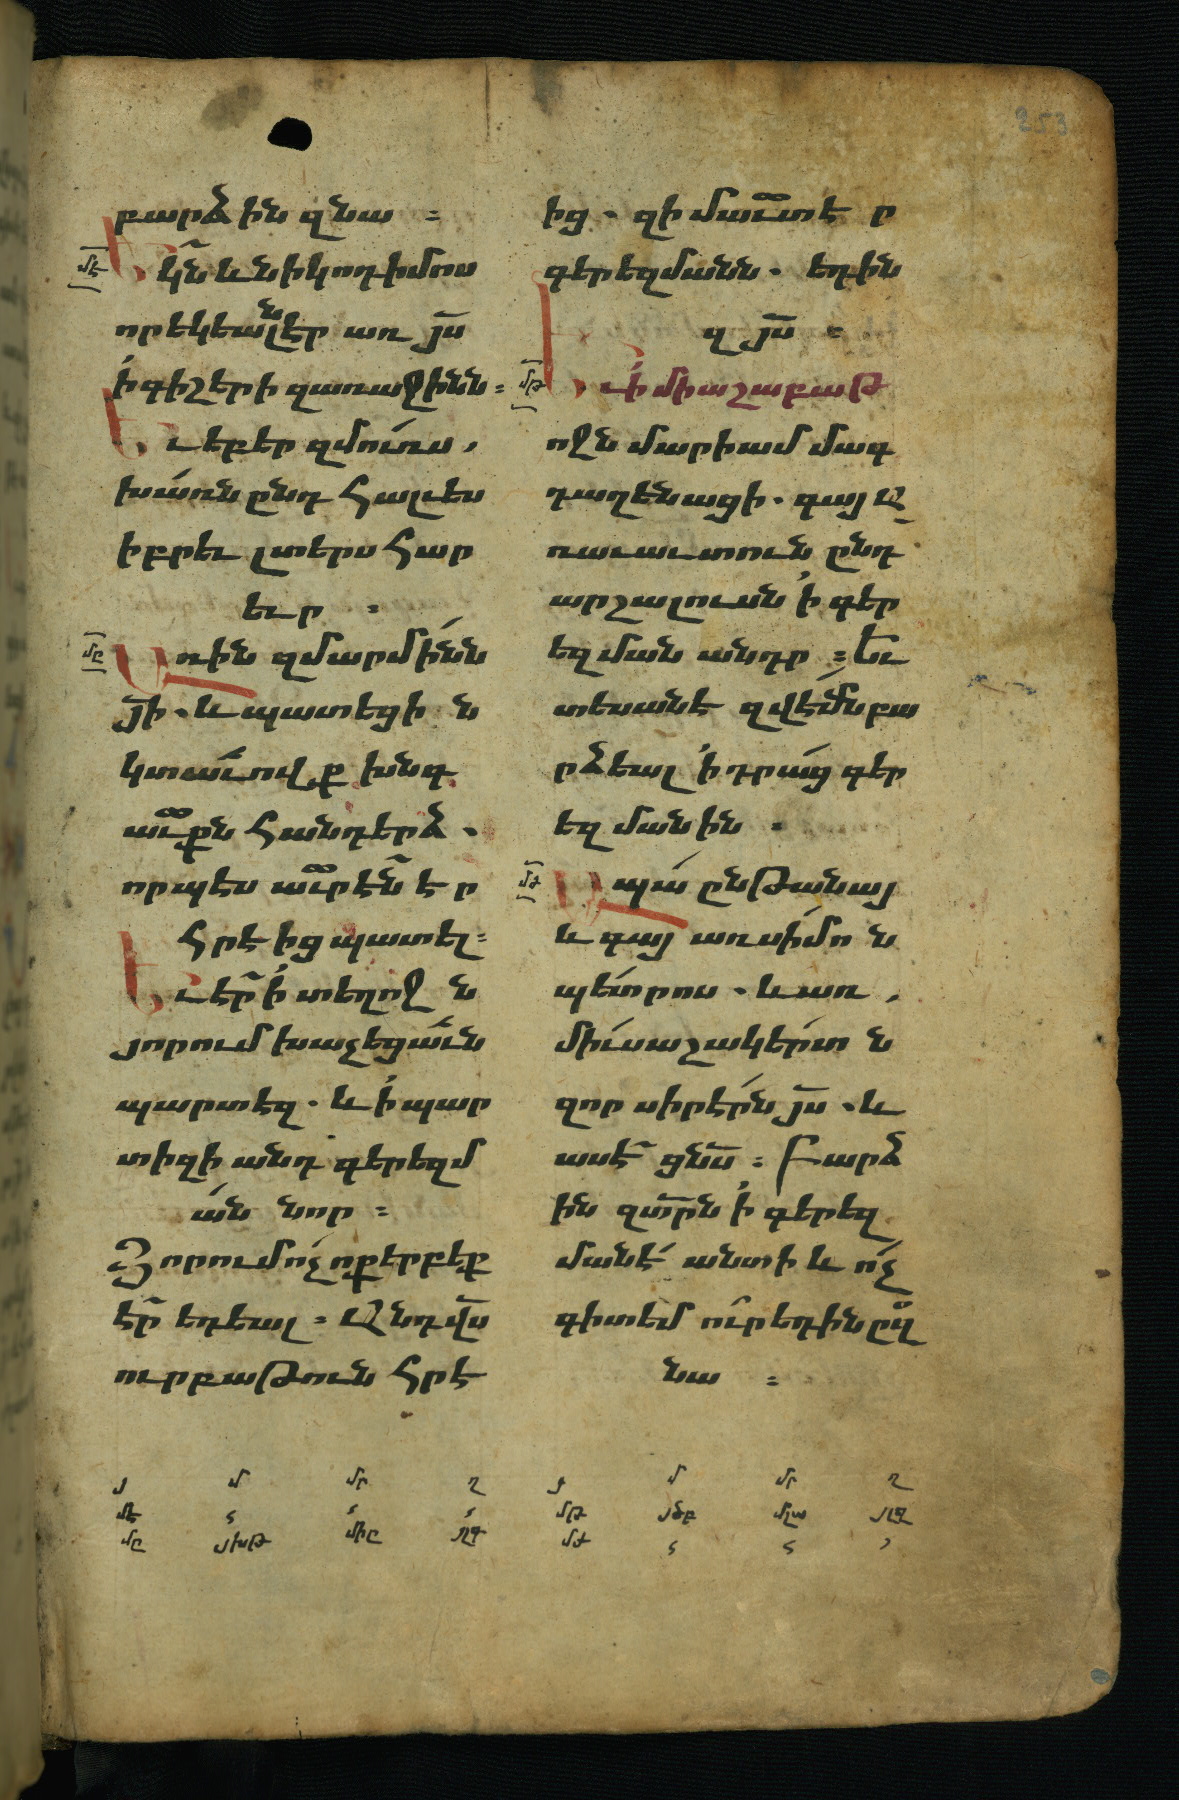 բարձին զնա ։
մէ Եկն և նիկոդիմոս
որ եկեալն էր առ յս
ի գիշերի զառաջինն ։
Եւ եբեր զմուռս,
խառն ընդ հալուես
իբրեւ լտերս հար
եւր ։
մը Առին զմարմինն
յի . և պատեցի ն
կտաւովք խնգ
աւքն հանդերձ .
որպէս աւրէն է ր
հրէից պատել ։
Եւ էր ի տեղոջ ն
յորում խաչեցաւն
պարտէզ . և ի պար
տիզի անդ գերեզմ
ան նոր ։
Յորում ոչ ոք երբեք
էր եդեալ ։ Վնդ վս
ուրբաթուն հրէ
ից . զի մաւտ է ր
գերեզմանն . եդին
զ յս ։
մթ Եւ ի միաշաբաթ
ոջն մարիամ մագ
դաղենացի . գայ ը
ռաւաւտուն ընդ
արշալուսն ի գեր
եզման անդր ։ Եւ
տեսանէ զվէմն բա
րձեալ ի դրաց գեր
եզմանին .
մժ Ապա ընթանայ
և գայ առ սիմո ն
պետրոս . և առ ,
միւս աշակերտ ն
զոր սիրէրն յս . և
ասէ ցնս ։ Բարձ
ին զտրն ի գերեզ
մանէ անտի և ոչ
գիտեմ ուր եդին ըզ
նա ։